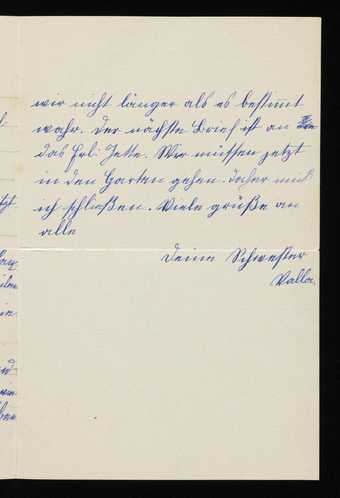 wir nicht länger als es bestimmt
wahr. Der nächste Brief ist an
das Frl. Jette. Wir müssen jetzt
in den Garten gehen. Daher muß
ich schließen. Viele grüße an
alle
Deine Schwester
Valla.